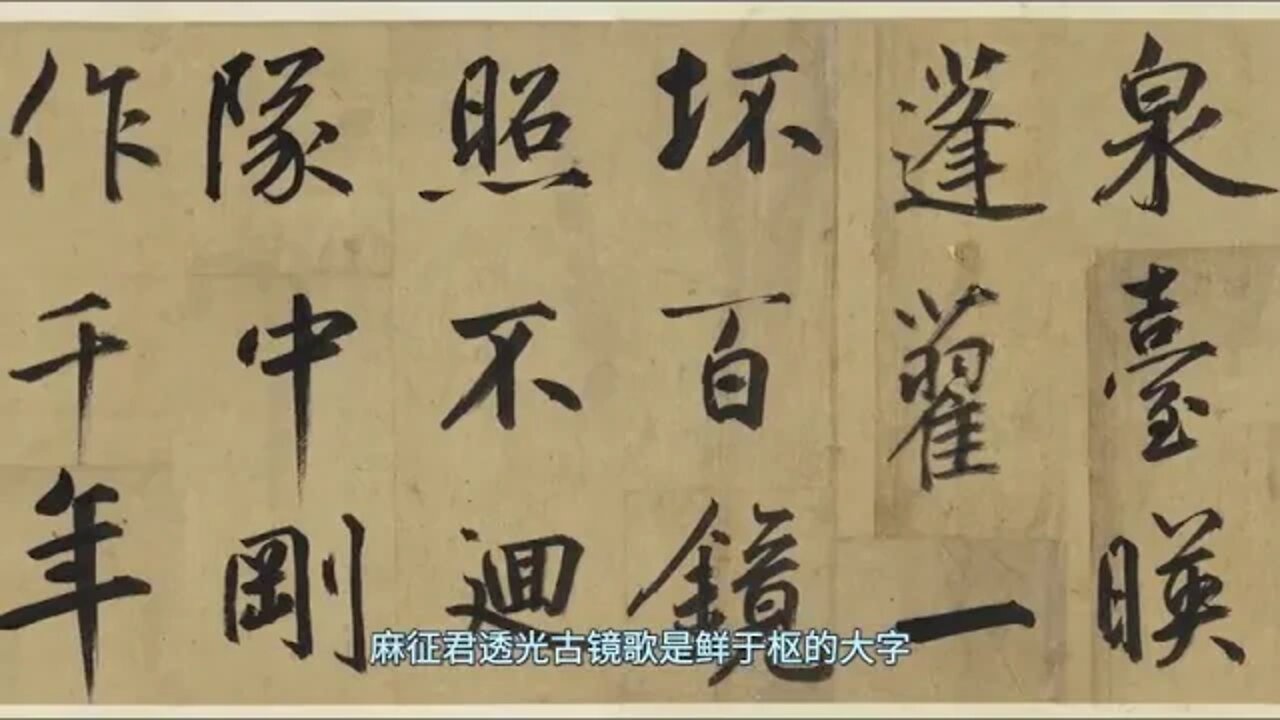 泉臺暎
蓬藋一
坏百鏡
照不迴
隊中剛
作千年
麻征君透光古镜歌是鲜于枢的大字